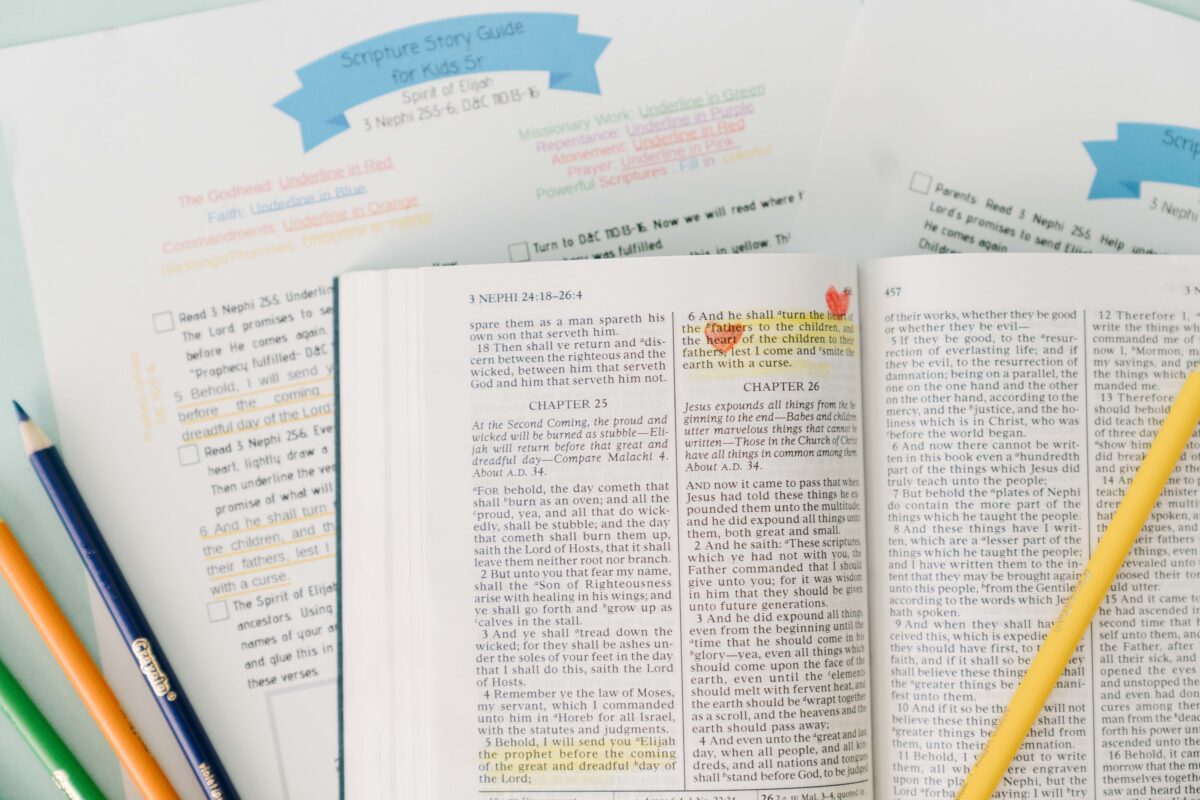 Scripture Story Guide
for Kids 5r
Spirit of Elijah
3 Nephi 25:5-6; D&C 110:13-16
The Godhead: Underline in Red
Faith: Underline in Blue
Commandments: Underline in Orange
Blessings/Promises: Underline in Yellow
Missionary Work: Underline in Green
Repentance: Underline in Purple
Atonement: Underline in Red
Prayer: Underline in Pink
Powerful Scriptures : Fill in colorful
Read 3 Nephi 25:5. Underlin
The Lord promises to se
before He comes again.
"Prophecy fulfilled- D&C
5 Behold, I will send y
before the coming
dreadful day of the Lord
Read 3 Nephi 25:6. Eve
heart, lightly draw a
Then underline the ver
promise of what will
6 And he shall turn
the children, and th
their fathers, lest I
with a curse.
The Spirit of Elijah
ancestors. Using
names of your a
and glue this in
these verses.
Turn to D&C 110:13-16. Now we will read where t
was fulfilled.
this in yellow. Th
Parents: Read 3 Nephi 25:5. Help
Lord's promises to send Elija
He comes again
Children
3 Neph
3 NEPHI 24:18–26:4
spare them as a man spareth his
own son that serveth him.
18 Then shall ye return and ᵃdis-
cern between the righteous and the
wicked, between him that serveth
God and him that serveth him not.
CHAPTER 25
At the Second Coming, the proud and
wicked will be burned as stubble—Eli-
jah will return before that great and
dreadful day—Compare Malachi 4.
About A.D. 34.
ᵃFOR behold, the day cometh that
shall ᵇburn as an oven; and all the
ᶜproud, yea, and all that do wick-
edly, shall be stubble; and the day
that cometh shall burn them up,
saith the Lord of Hosts, that it shall
leave them neither root nor branch.
2 But unto you that fear my name,
shall the ᵃSon of Righteousness
arise with healing in his wings; and
ye shall go forth and ᵇgrow up as
ᶜcalves in the stall.
3 And ye shall ᵃtread down the
wicked; for they shall be ashes un-
der the soles of your feet in the day
that I shall do this, saith the Lord
of Hosts.
4 Remember ye the law of Moses,
my servant, which I commanded
unto him in ᵃHoreb for all Israel,
with the statutes and judgments.
5 Behold, I will send you ᵃElijah
the prophet before the coming
of the great and dreadful ᵇday of
the Lord;
6 And he shall ᵃturn the heart of
the ᵇfathers to the children, and
the heart of the children to their
fathers, lest I come and ᶜsmite the
earth with a curse.
CHAPTER 26
Jesus expounds all things from the be-
ginning to the end—Babes and children
utter marvelous things that cannot be
written—Those in the Church of Christ
have all things in common among them.
About A.D. 34.
AND now it came to pass that when
Jesus had told these things he ex-
pounded them unto the multitude;
and he did expound all things unto
them, both great and small.
2 And he saith: ᵃThese scriptures,
which ye had not with you, the
Father commanded that I should
give unto you; for it was wisdom
in him that they should be given
unto future generations.
3 And he did expound all things,
even from the beginning until the
ᵃtime that he should come in his
ᵇglory—yea, even all things which
should come upon the face of the
earth, even until the ᶜelements
should melt with fervent heat, and
the earth should be ᵈwrapt together
as a scroll, and the heavens and the
earth should pass away;
4 And even unto the ᵃgreat and last
day, when all people, and all kin-
dreds, and all nations and tongues
shall ᵇstand before God, to be judged
457
3 N
of their works, whether they be good
or whether they be evil—
5 If they be good, to the ᵃresur-
rection of everlasting life; and if
they be evil, to the resurrection of
damnation; being on a parallel, the
one on the one hand and the other
on the other hand, according to the
mercy, and the ᵇjustice, and the ho-
liness which is in Christ, who was
ᶜbefore the world began.
6 And now there cannot be writ-
ten in this book even a ᵃhundredth
part of the things which Jesus did
truly teach unto the people;
7 But behold the ᵃplates of Nephi
do contain the more part of the
things which he taught the people.
8 And these things have I writ-
ten, which are a ᵃlesser part of the
things which he taught the people;
and I have written them to the in-
tent that they may be brought again
unto this people, ᵇfrom the Gentiles,
according to the words which Jesus
hath spoken.
9 And when they shall have
ceived this, which is expedie
they should have first, to
faith, and if it shall so be
shall believe these things
the ᵃgreater things be mani-
fest unto them.
10 And if it so be that will not
believe these things, shall the
ᵃgreater things be held from
them, unto their demnation.
11 Behold, I about to write
them, all wh were engraven
upon the pla Nephi, but the
Lord ᵃforba saying: I will ᵇtry
12 Therefore I,
write the things wh
commanded me of
now I, ᵃMormon, m
my sayings, and pr
the things which
manded me.
13 Therefore
should behold
did teach the
of three days
ᵃshow him
did break
and give
14 An
teach
dren
spoken, a
gues, and
their fathers
things, even
revealed unto
loosed their to
could utter.
15 And it came to
he had ascended in
second time that h
self unto them, and
the Father, after
all their sick, and
opened the eyes
and unstopped the
and even had don
cures among them
man from the ᵇdea
forth his power un
ascended unto the
16 Behold, it ca
morrow that the mu
themselves togeth
saw and heard the
Crayola
violet